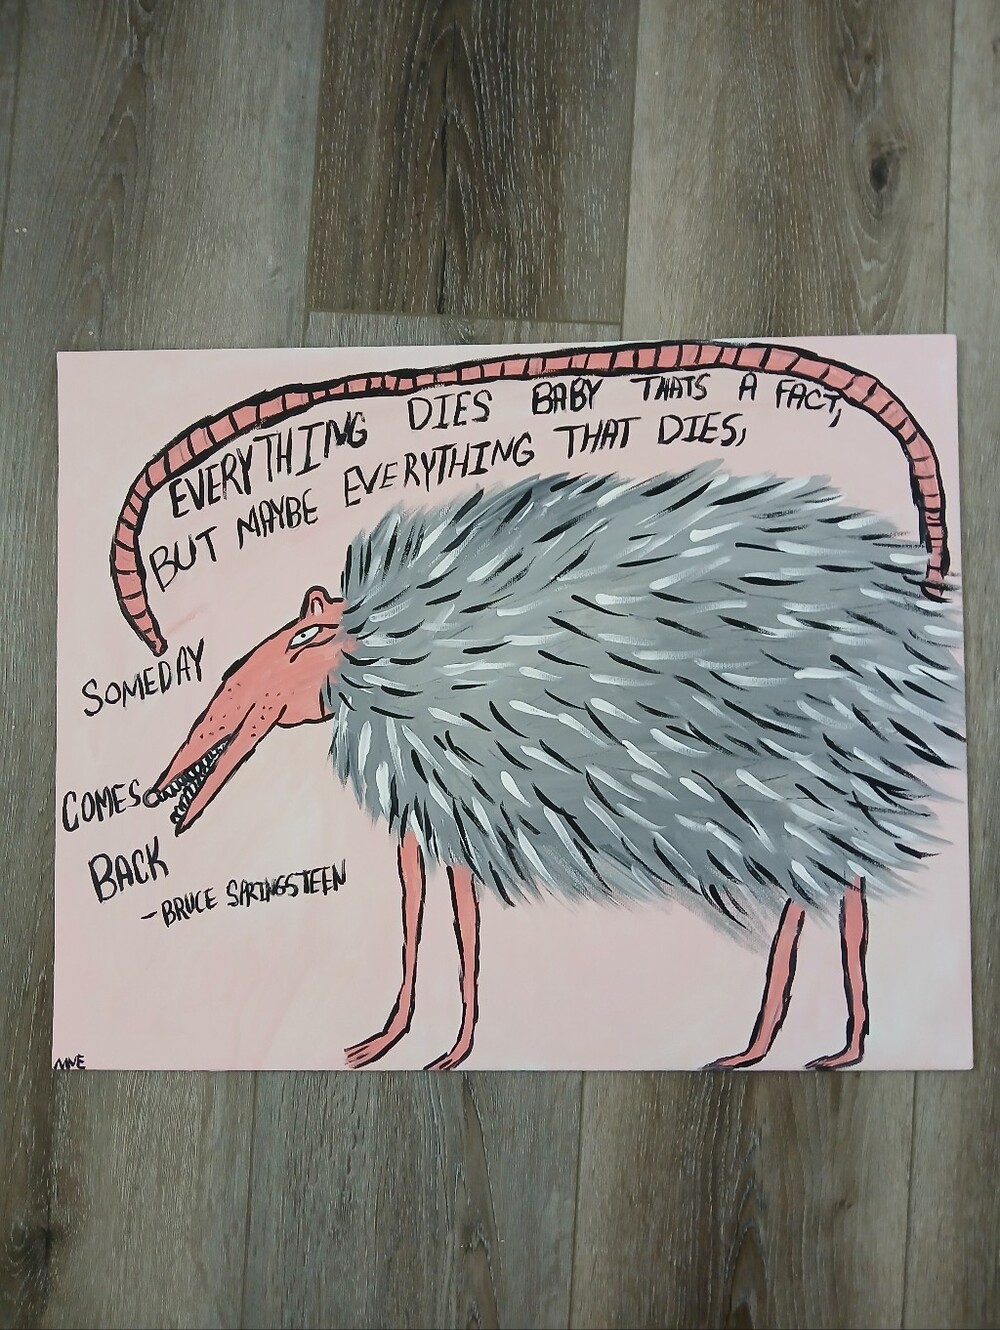 EVERYTHING DIES BABY THATS A FACT,
BUT MAYBE EVERYTHING THAT DIES,
SOMEDAY
COMES
BACK
-BRUCE SPRINGSTEEN
MNE